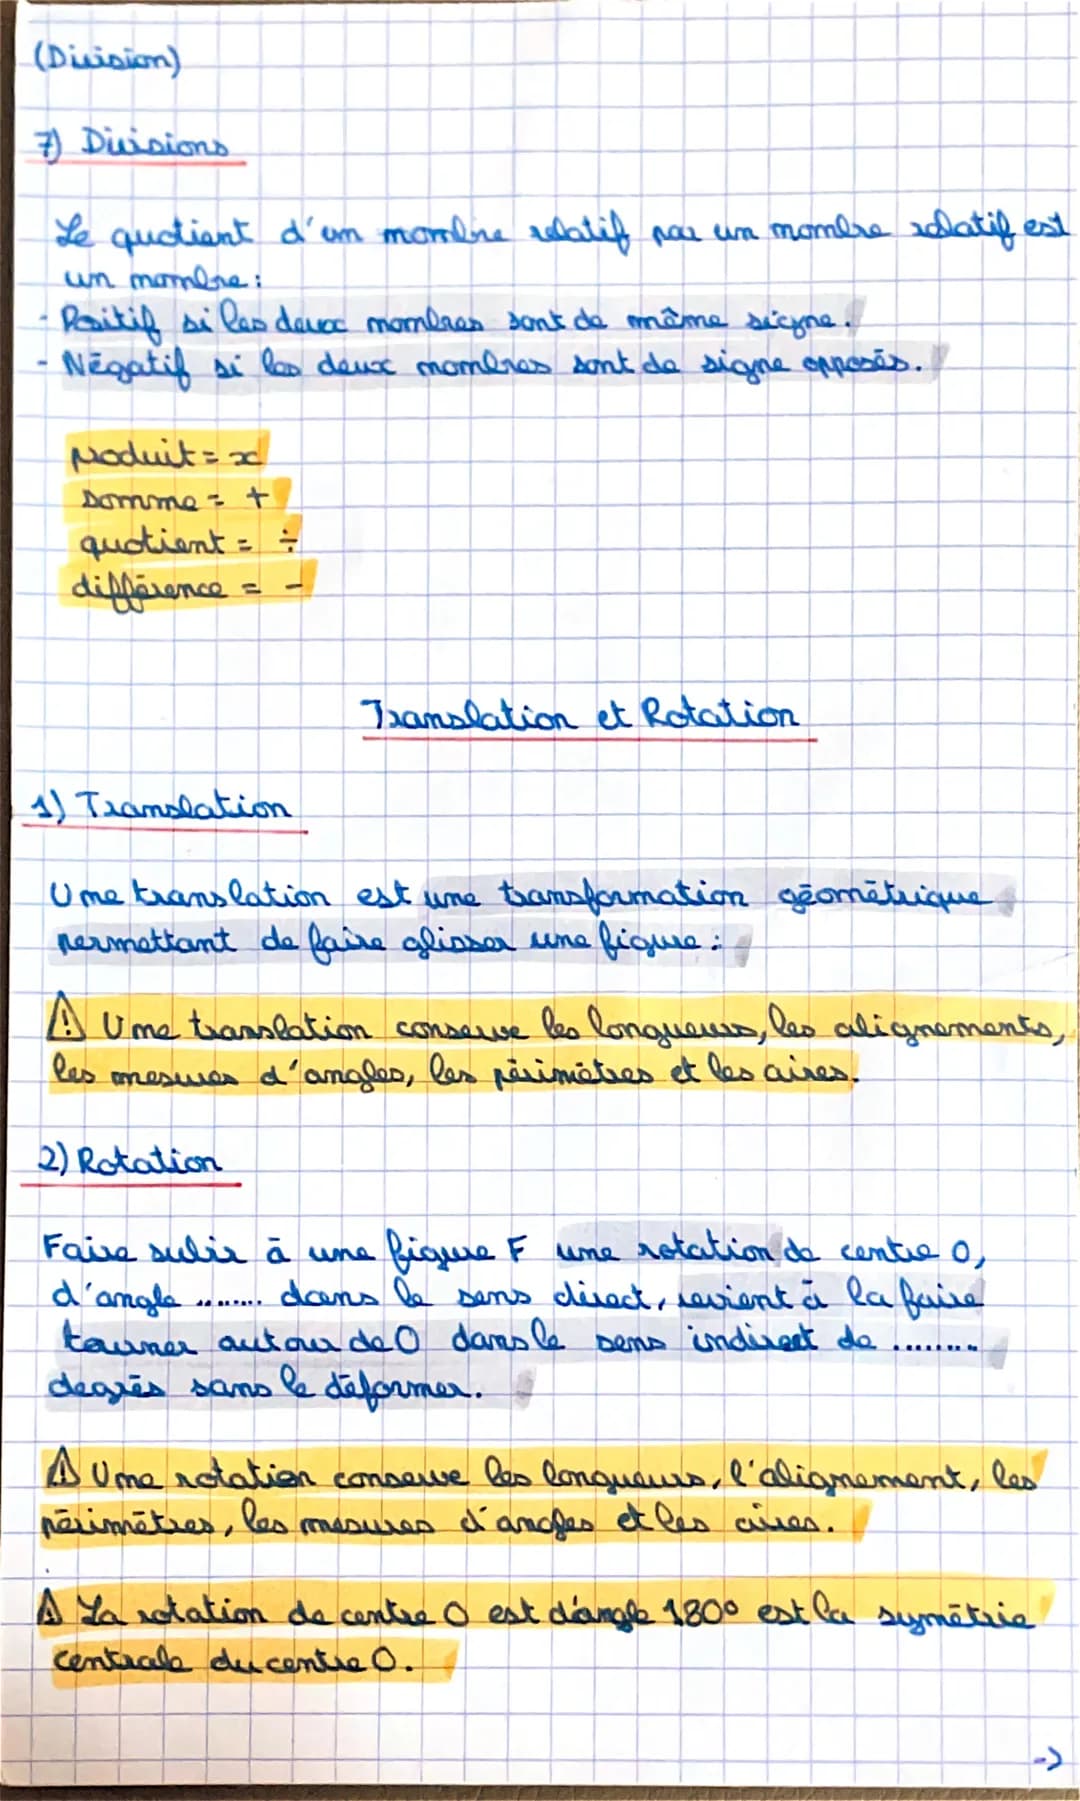 (Division)
7) Divisions
Le quotient d'un nombre relatif par un nombre relatif est
un nombre :
- Positif si les deux nombres sont de même signe.
- Négatif si les deux nombres sont de signe opposés.
produit = x
somme = +
quotient = ÷
différence = -
Translation et Rotation
1) Translation
Une translation est une transformation géométrique
permettant de faire glisser une figure :
⚠ Une translation conserve les longueurs, les alignements,
les mesures d'angles, les périmètres et les aires.
2) Rotation
Faire subir à une figure F une rotation de centre O,
d'angle ........ dans le sens direct, revient à la faire
tourner autour de O dans le sens indirect de ........
degrés sans le déformer.
⚠ Une rotation conserve les longueurs, l'alignement, les
périmètres, les mesures d'angles et les aires.
⚠ La rotation de centre O est d'angle 180° est la symétrie
centrale du centre O.
->